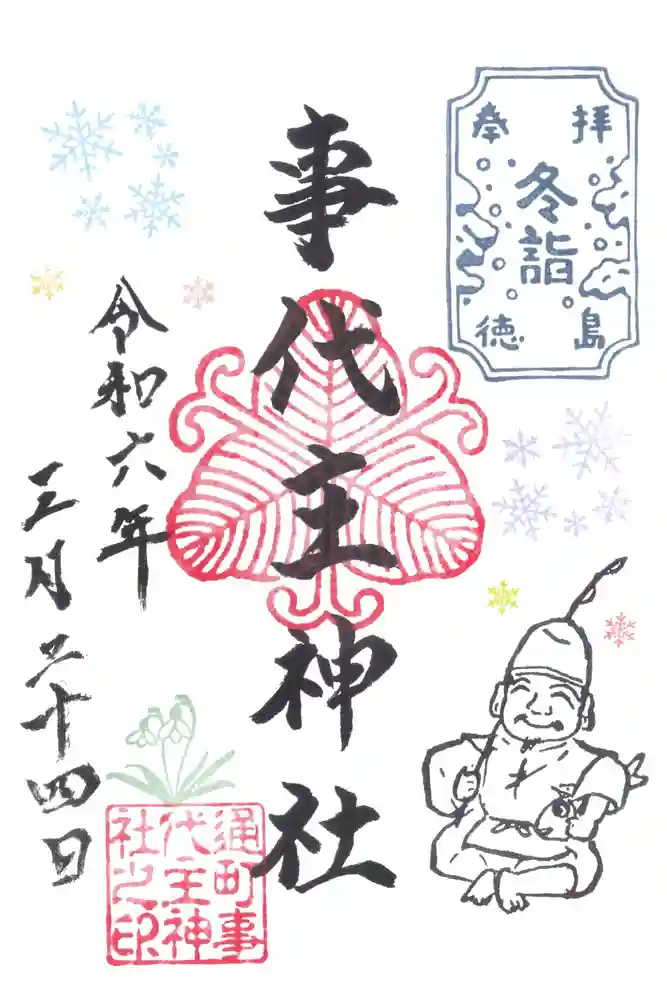 奉拝
冬詣
徳島
事代主神社
令和六年
三月二十四日
通町事
代主神
社之印